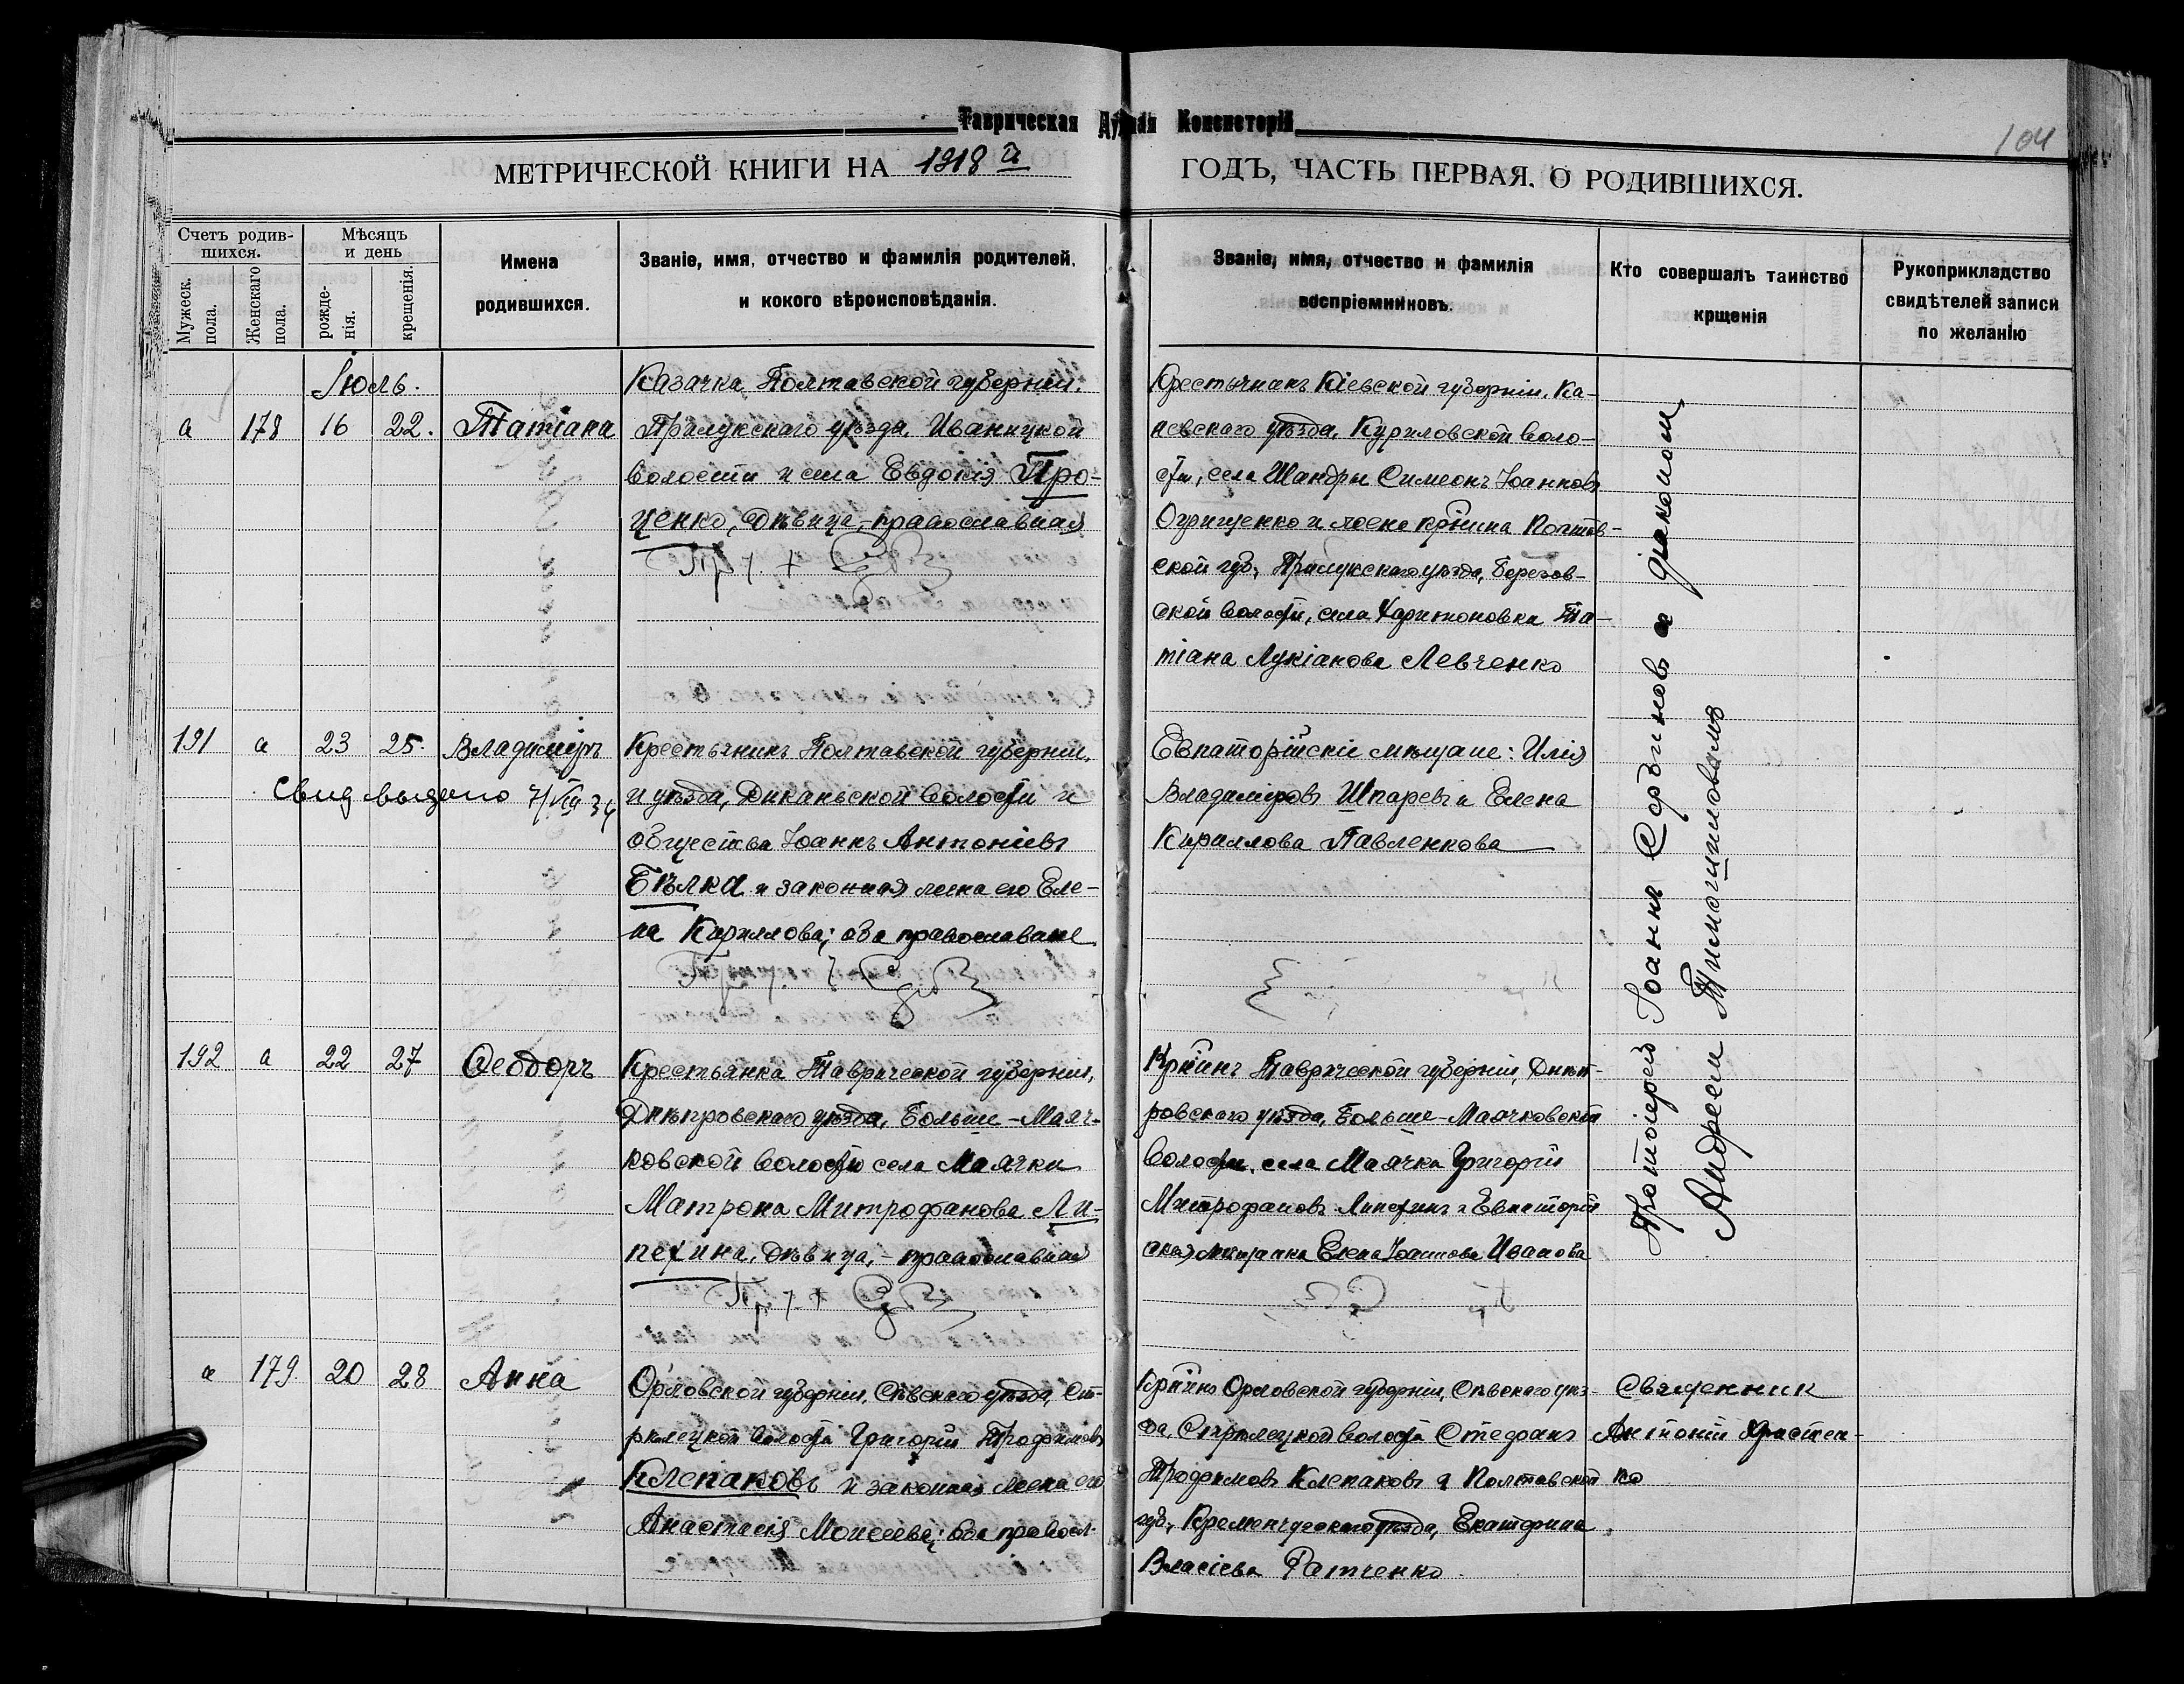 Таврическая Духовная Консисторія
104
МЕТРИЧЕСКОЙ КНИГИ НА 1918 й ГОДЪ, ЧАСТЬ ПЕРВАЯ. О РОДИВШИХСЯ.
Счетъ родив-
шихся.
Мужеск.
пола.
Женскаго
пола.
Мѣсяцъ
и день
рожде-
нія.
крещенія.
Имена
родившихся.
Званіе, имя, отчество и фамилія родителей,
и кокого вѣроисповѣданія.
Званіе, имя, отчество и фамилія
воспріемниковъ.
Кто совершалъ таинство
крщенія
Рукоприкладство
свидѣтелей записи
по желанію
Іюль.
а 178 16 22. Татіана
Казачка Полтавской губерніи,
Прилукскаго уѣзда, Иваницкой
волости и села Евдокія Про-
ценко, дѣвица, православная
Крестьянинъ Кіевской губерніи, Ка-
невскаго уѣзда, Куриловской воло-
сти, села Шандры Симеонъ Іоанновъ
и жена кр̃нина Полтав-
ской губ., Прилукскаго уѣзда, Березов-
ской волости, села Харитоновки Та-
тіана Лукіанова Левченко
191 а 23 25. Владиміръ
Свид выдано 7/VIII 34
Крестьянинъ Полтавской губерніи,
и уѣзда, Диканьской волости и
общества Іоаннъ Антоніевъ
Бѣлка и законная жена его Еле-
на Кириллова; оба православные
Евпаторійскіе мѣщане: Илія
Владиміровъ Шпаревъ и Елена
Кириллова Павленкова
192 а 22 27 Ѳеодоръ
Крестьянка Таврической губерніи,
Днѣпровскаго уѣзда, Больше-Маяч-
ковской волости села Маячки
Матрона Митрофанова Ли-
пехина, дѣвица, - православная
Кр̃нинъ Таврической губерніи, Днѣп-
ровскаго уѣзда, Больше-Маячковской
волости, села Маячка Григорій
Митрофановъ Липехинъ и Евпаторій
ская мѣщанка Елена Іоаннова Иванова
Протоіерей Іоаннъ Сербиновъ и діакономъ
Андреемъ Тимошиловымъ
а 179. 20 28 Анна
Орловской губерніи, Сѣвскаго уѣзда, Ст-
рѣлецкой волости Григорій Трофимовъ
Клепаковъ и законная жена его
Анастасія Моисеева; оба правосл.
Кр̃нинъ Орловской губерніи, Сѣвскаго уѣз-
да, Стрѣлецкой волости Стефанъ
Трофимовъ Клепаковъ и Полтавской
губ., Кременчугскаго уѣзда, Екатерина
Власіева Ратченко
Священникъ
Антоній Христен-
ко